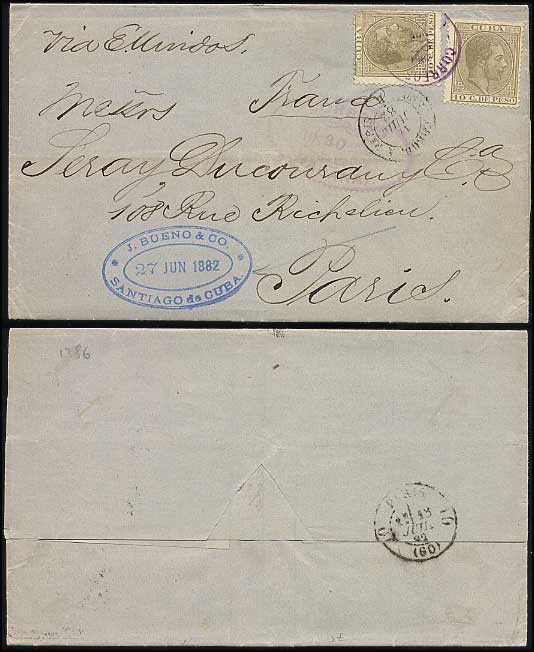 Via EUnidos.
CUBA
10 C. DE PESO
CUBA
10 C. DE PESO
Messrs
France
Seray Ducouran y Ca
108 Rue Richelieu.
Paris.
J. BUENO & CO.
27 JUN 1882
SANTIAGO de CUBA
1386
PARIS
13
JUIL
82
(60)